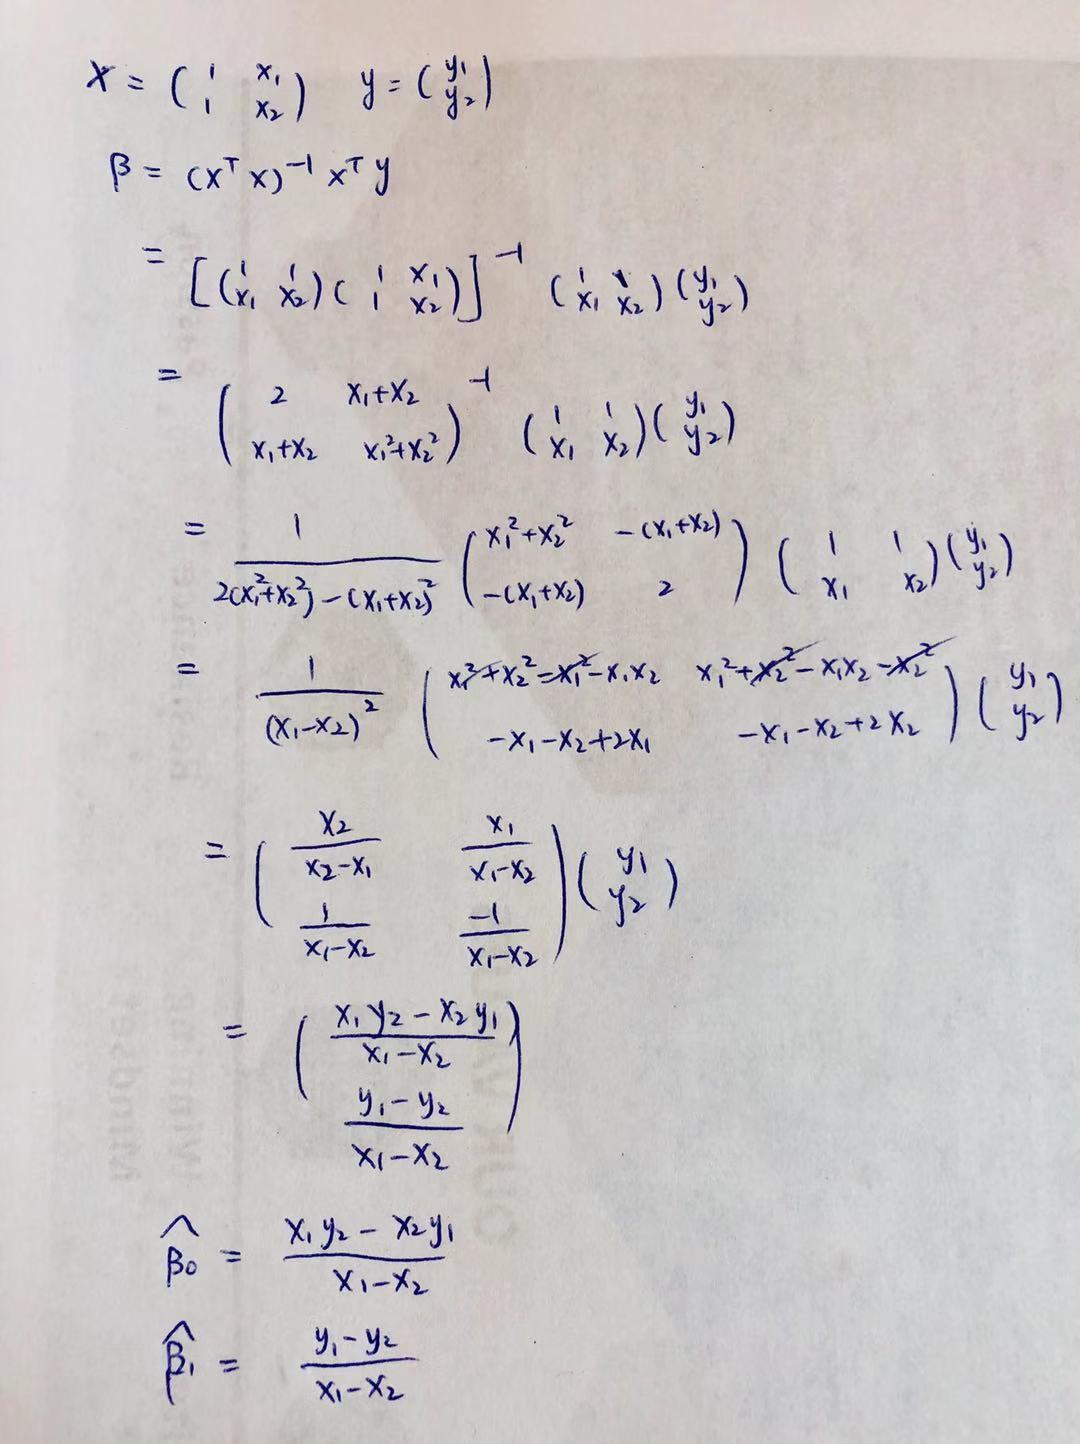 X = ( 1 x₁ ; 1 x₂ ) y = ( y₁ ; y₂ )
β = (xᵀ x)⁻¹ xᵀ y
= [ ( 1 1 ; x₁ x₂ ) ( 1 x₁ ; 1 x₂ ) ]⁻¹ ( 1 1 ; x₁ x₂ ) ( y₁ ; y₂ )
= ( 2 x₁+x₂ ; x₁+x₂ x₁²+x₂² )⁻¹ ( 1 1 ; x₁ x₂ ) ( y₁ ; y₂ )
= 1 / (2(x₁²+x₂²) − (x₁+x₂)²) ( x₁²+x₂² −(x₁+x₂) ; −(x₁+x₂) 2 ) ( 1 1 ; x₁ x₂ ) ( y₁ ; y₂ )
= 1 / (x₁−x₂)² ( x₁²+x₂²−x₁²−x₁x₂ x₁²+x₂²−x₁x₂−x₂² ; −x₁−x₂+2x₁ −x₁−x₂+2x₂ ) ( y₁ ; y₂ )
= ( x₂/(x₂−x₁) x₁/(x₁−x₂) ; 1/(x₁−x₂) −1/(x₁−x₂) ) ( y₁ ; y₂ )
= ( (x₁y₂ − x₂y₁)/(x₁−x₂) ; (y₁−y₂)/(x₁−x₂) )
β̂₀ = (x₁y₂ − x₂y₁)/(x₁−x₂)
β̂₁ = (y₁−y₂)/(x₁−x₂)